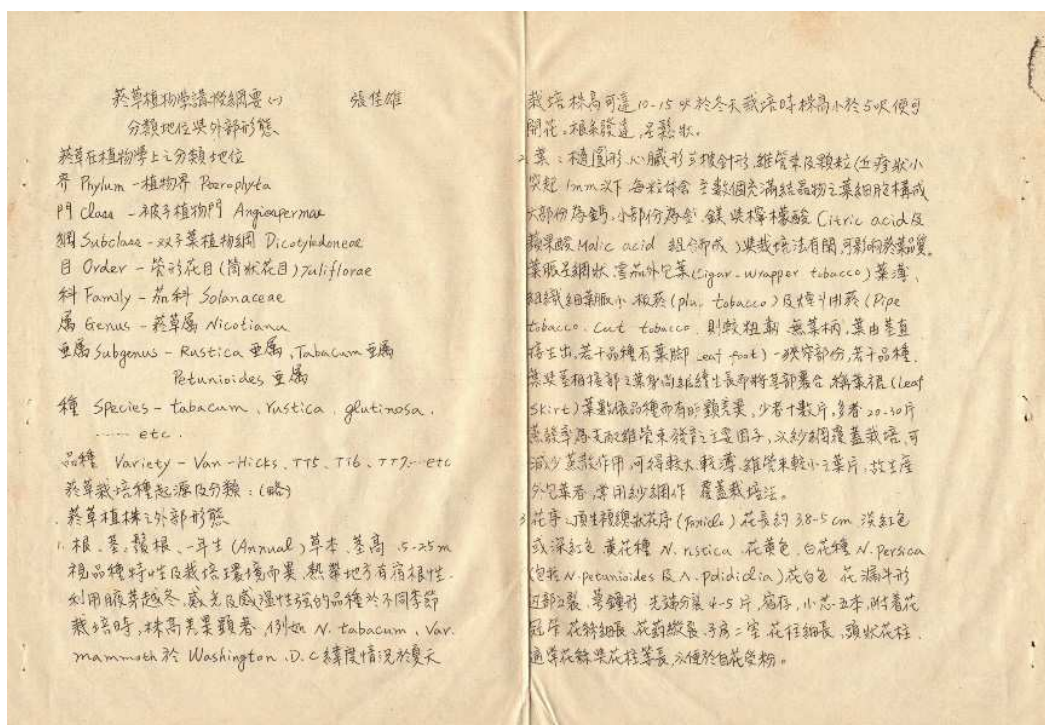 菸草植物學講授綱要(一) 張佳雄
分類地位與外部形態
菸草在植物學上之分類地位
界 Phylum - 植物界
門 Class - 被子植物門 Angiospermae
綱 Subclass - 双子葉植物綱 Dicotyledoneae
目 Order - 管形花目(筒狀花目) Tuliflorae
科 Family - 茄科 Solanaceae
属 Genus - 菸草属 Nicotiana
亜属 Subgenus - Rustica 亜属、Tabacum 亜属
Petunioides 亜属
種 Species - tabacum、rustica、glutinosa、
...... etc.
品種 Variety - Van-Hicks、TT5、TT6、TT7...etc
菸草栽培種起源及分類:(略)
菸草植株之外部形態
1. 根、莖、鬚根、一年生(Annual)草本、莖高 .5-2.5m
視品種特性及栽培環境而異,熱帶地方有宿根性.
利用腋芽越冬,感光及感溫性強的品種於不同季節
栽培時,株高差異顯著,例如 N. tabacum、Var.
mammoth 於 Washington.D.C 緯度情況於夏天
栽培株高可達10-15呎於冬天栽培時株高小於5呎便可
開花。根系發達,呈鬆狀。
2. 葉:橢圓形、心臟形至披針形,維管束及顆粒(近痙狀小
突起 1mm以下 每粒体含 數個充滿結晶物之葉細胞構成
大部份為鈣,小部份為 鎂與檸檬酸 Citric acid 及
蘋果酸 Malic acid 組合而成)與栽培法有関,可影响菸葉品質。
葉脈呈網狀,雪茄外包葉(Cigar-wrapper tobacco)葉薄、
組織細葉脈小,板菸(plug tobacco)及煙斗用菸(Pipe
tobacco、Cut tobacco、則較粗剛,無葉柄,葉由莖直
接生出,若干品種有葉脚(Leaf foot)一狹窄部份,若干品種,
葉與莖相接部之葉身尚継續生長而將莖部裹合 稱葉裙(Leaf
skirt)葉數依品種而有明顯差異,少者十數片,多者20-30片
蒸發率為支配維管束發育之主要因子,以紗網覆蓋栽培,可
減少蒸散作用,可得較大、較薄、維管束較小之葉片,故生產
外包葉者,常用紗網作 覆蓋栽培法。
3. 花序:頂生複總狀花序(Panicle)花長約 3.8-5cm 淡紅色
或深紅色 黃花種 N. rustica、花黃色、白花種 N. persica
(包括 N. petunioides 及 N. )花白色 花漏斗形
五裂、萼鐘形 先端分裂4-5片,宿存,小芯五本,附着花
冠 花絲細長 花葯縱裂 子房二室 花柱細長,頭狀花柱、
通常花絲與花柱等長,以便於自花受粉。